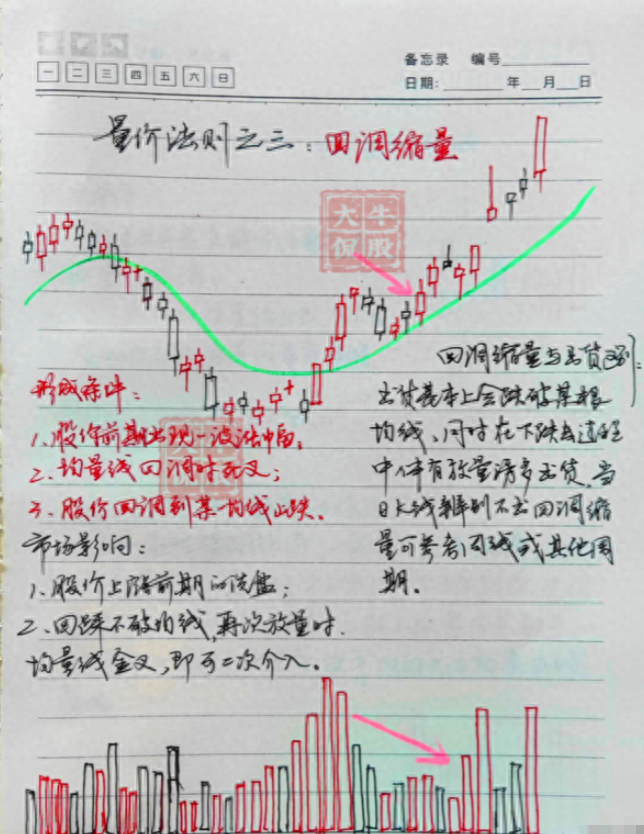 备忘录 编号
一 二 三 四 五 六 日
日期: 年 月 日
量价法则之三：回调缩量
大牛
侃股
回调缩量与出货区别：
形成条件：
1、股价前期出现一波涨幅；
2、均量线回调时死叉；
3、股价回调到某一均线止跌。
市场影响：
1、股价上涨前期的洗盘；
2、回踩不破均线，再次放量时.
均量线金叉，即可二次介入。
出货基本上会跌破某根
均线，同时在下跌过程
中伴有放量诱多出货，当
日K线辨别不出回调缩
量可参考周线或其他周
期。